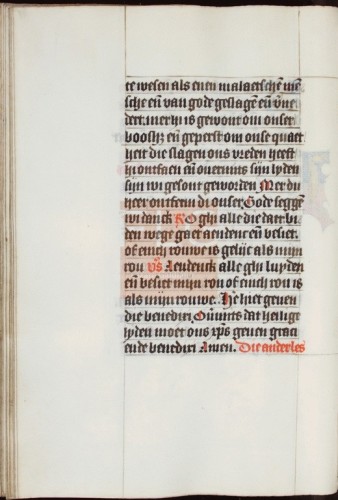 te wesen als enen malaetschē mē
sche eñ van gode geslagē eñ v̄ne
dert. mer hi is gewont om onser
boosh; eñ gepeest om onse quaet
heit die slagen ons vreden heeft
hi ontfaen eñ ouermits sijn lyden
sijn wi gesont geworden Mer du
heer ontferm di onser. Gode seggē
wi danck R O ghi alle die daer bi
den wege gaet aendenct eñ besiet.
of enich rouwe is gelijc als mijn
rou vs Aendenct alle ghi luyden
eñ besiet mijn rou of enich rou is
als mijn rouwe. Here hiet geuen
die benedixi. Oūmits dat heilige
lyden moet ons xp̄s geuen graci
ende benedixi Amen. Die ander les